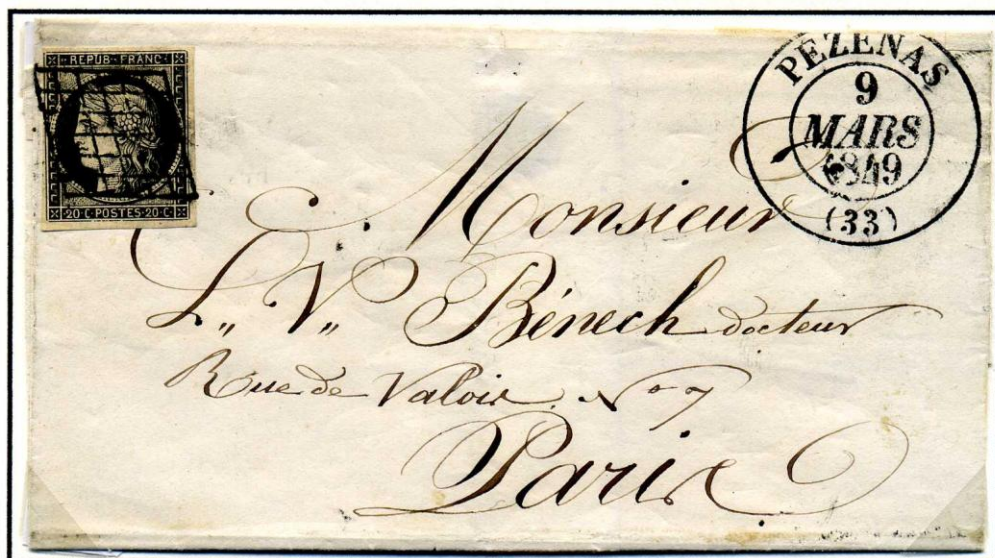 REPUB·FRANC·
20·C·POSTES·20·C
PEZENAS
9
MARS
1849
(33)
Monsieur
L,, V,, Bénech docteur
Rue de Valois. N° 7
Paris